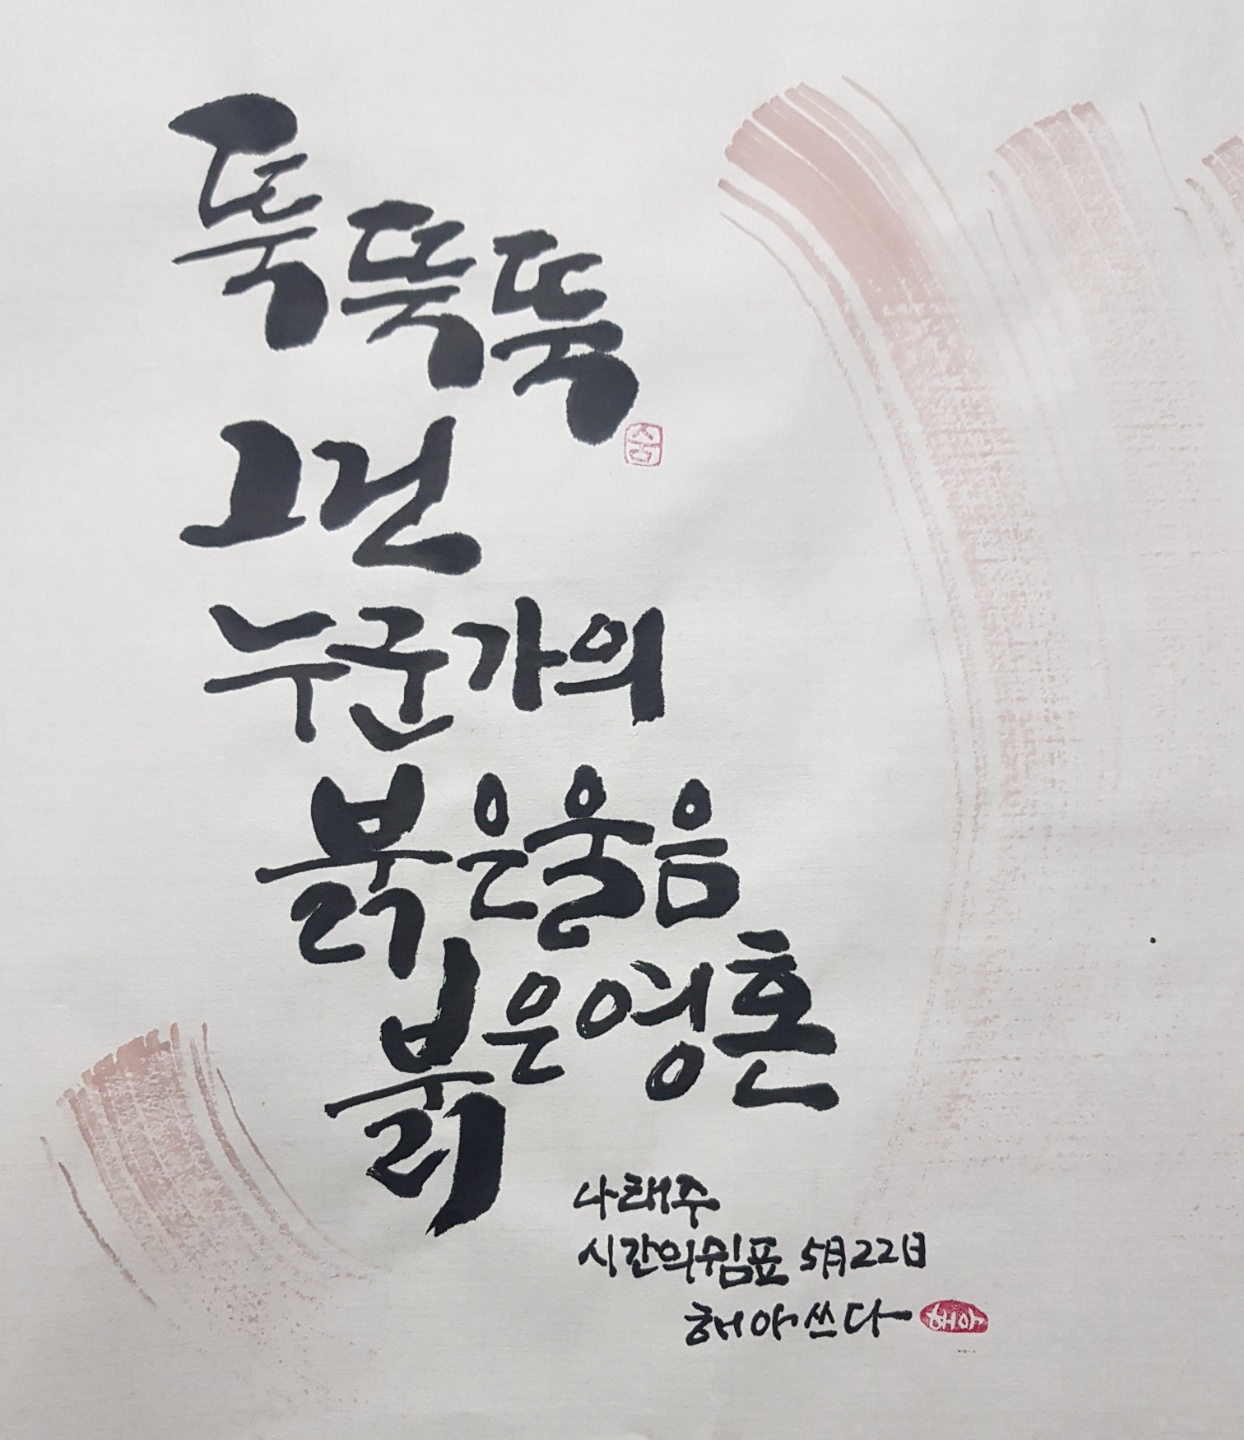 뚝뚝뚝
숨
그건
누군가의
붉은울음
붉은영혼
나태주
시간의쉼표 5月22日
해야쓰다
해야